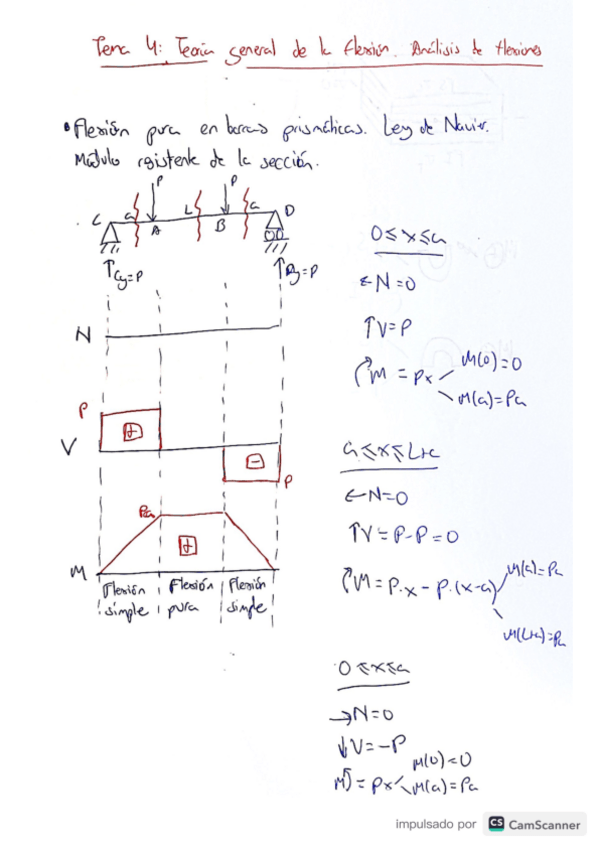 Tema 4: Teoría general de la flexión. Análisis de flexiones
• Flexión pura en barras prismáticas. Ley de Navier.
Módulo resistente de la sección.
P
P
C
a
A
L
B
a
D
↑Cy=P
↑Dy=P
N
P
V
+
-
P
Pa
+
M
Flexión simple
Flexión pura
Flexión simple
0≤x≤a
←N=0
↑V=P
M = Px
M(0)=0
M(a)=Pa
a≤x≤L+a
←N=0
↑V=P-P=0
M=P.x-P.(x-a)
M(a)=Pa
M(L+a)=Pa
0≤x≤a
→N=0
↓V=-P
M = Px
M(0)=0
M(a)=Pa
impulsado por CS CamScanner